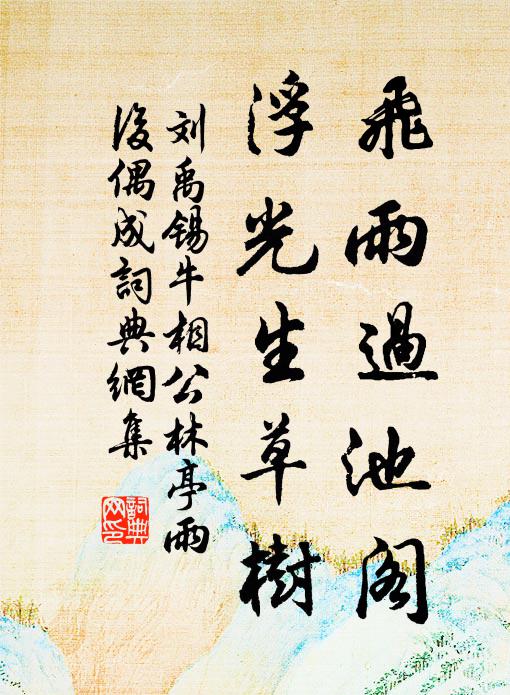 飛雨過池阁
浮光生草樹
刘禹锡牛相公林亭雨
後偶成詞典網集
詞典
网印